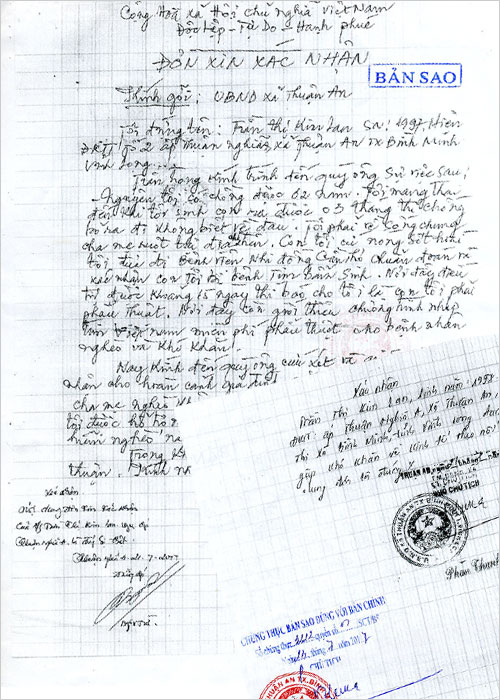 Cộng Hoà xã Hội chủ nghĩa Việt Nam
Độc Lập - Tự Do - Hạnh phúc
ĐƠN XIN XÁC NHẬN
BẢN SAO
Kính gởi: UBND xã Thuận An
Tôi đứng tên: Trần Thị Kim Lan SN: 1997. Hiện
ĐKTT: Tổ 2 ấp Thuận nghĩa xã Thuận An TX Bình Minh
Vĩnh Long
Trân trọng kính trình đến quý ông sự việc sau:
Nguyên tôi có chồng được 02 năm. Tôi mang thai
đến khi tôi sinh con ra được 03 tháng thì chồng
bỏ ra đi không biết về đâu. Tôi phải về sống chung
cha mẹ ruột Con tôi cứ nóng sốt hoài
tôi đưa đi Bệnh viện Nhi đồng Cần thơ chuẩn đoán và
xác nhận con tôi bị bệnh Tim Bẩm Sinh. Nơi đây điều
trị được khoảng 15 ngày thì báo cho tôi là con tôi phải
phẩu thuật. Nơi đây còn giới thiệu chương trình nhịp
tim việt nam miễn phí phẩu thuật cho bệnh nhân
nghèo và khó khăn.
Nay kính đến quý ông cứu xét và
nhận cho hoàn cảnh gia đình
cha mẹ nghèo
tôi được hổ trợ
hiểm nghèo
Trong
thuận.
Xác nhận
Trần Thị Kim Lan, sinh năm: 1997
ĐKTT: ấp Thuận Nghĩa A, xã Thuận An,
Thị xã Bình Minh, tỉnh Vĩnh Long đang
gặp khó khăn về kinh tế theo nội
dung đơn là đúng
THUẬN AN,
PHÓ CHỦ TỊCH
Phạm Thanh
Xác nhận
Nội dung đơn xin xác nhận
của Thị Kim Lan ngụ ấp
Thuận Nghĩa A là đúng sự thật
Thuận nghĩa A
Trưởng ấp
CHỨNG THỰC BẢN SAO ĐÚNG VỚI BẢN CHÍNH
Số chứng thực quyển số SCT/BS
Ngày tháng 7 năm 2017
CHỦ TỊCH